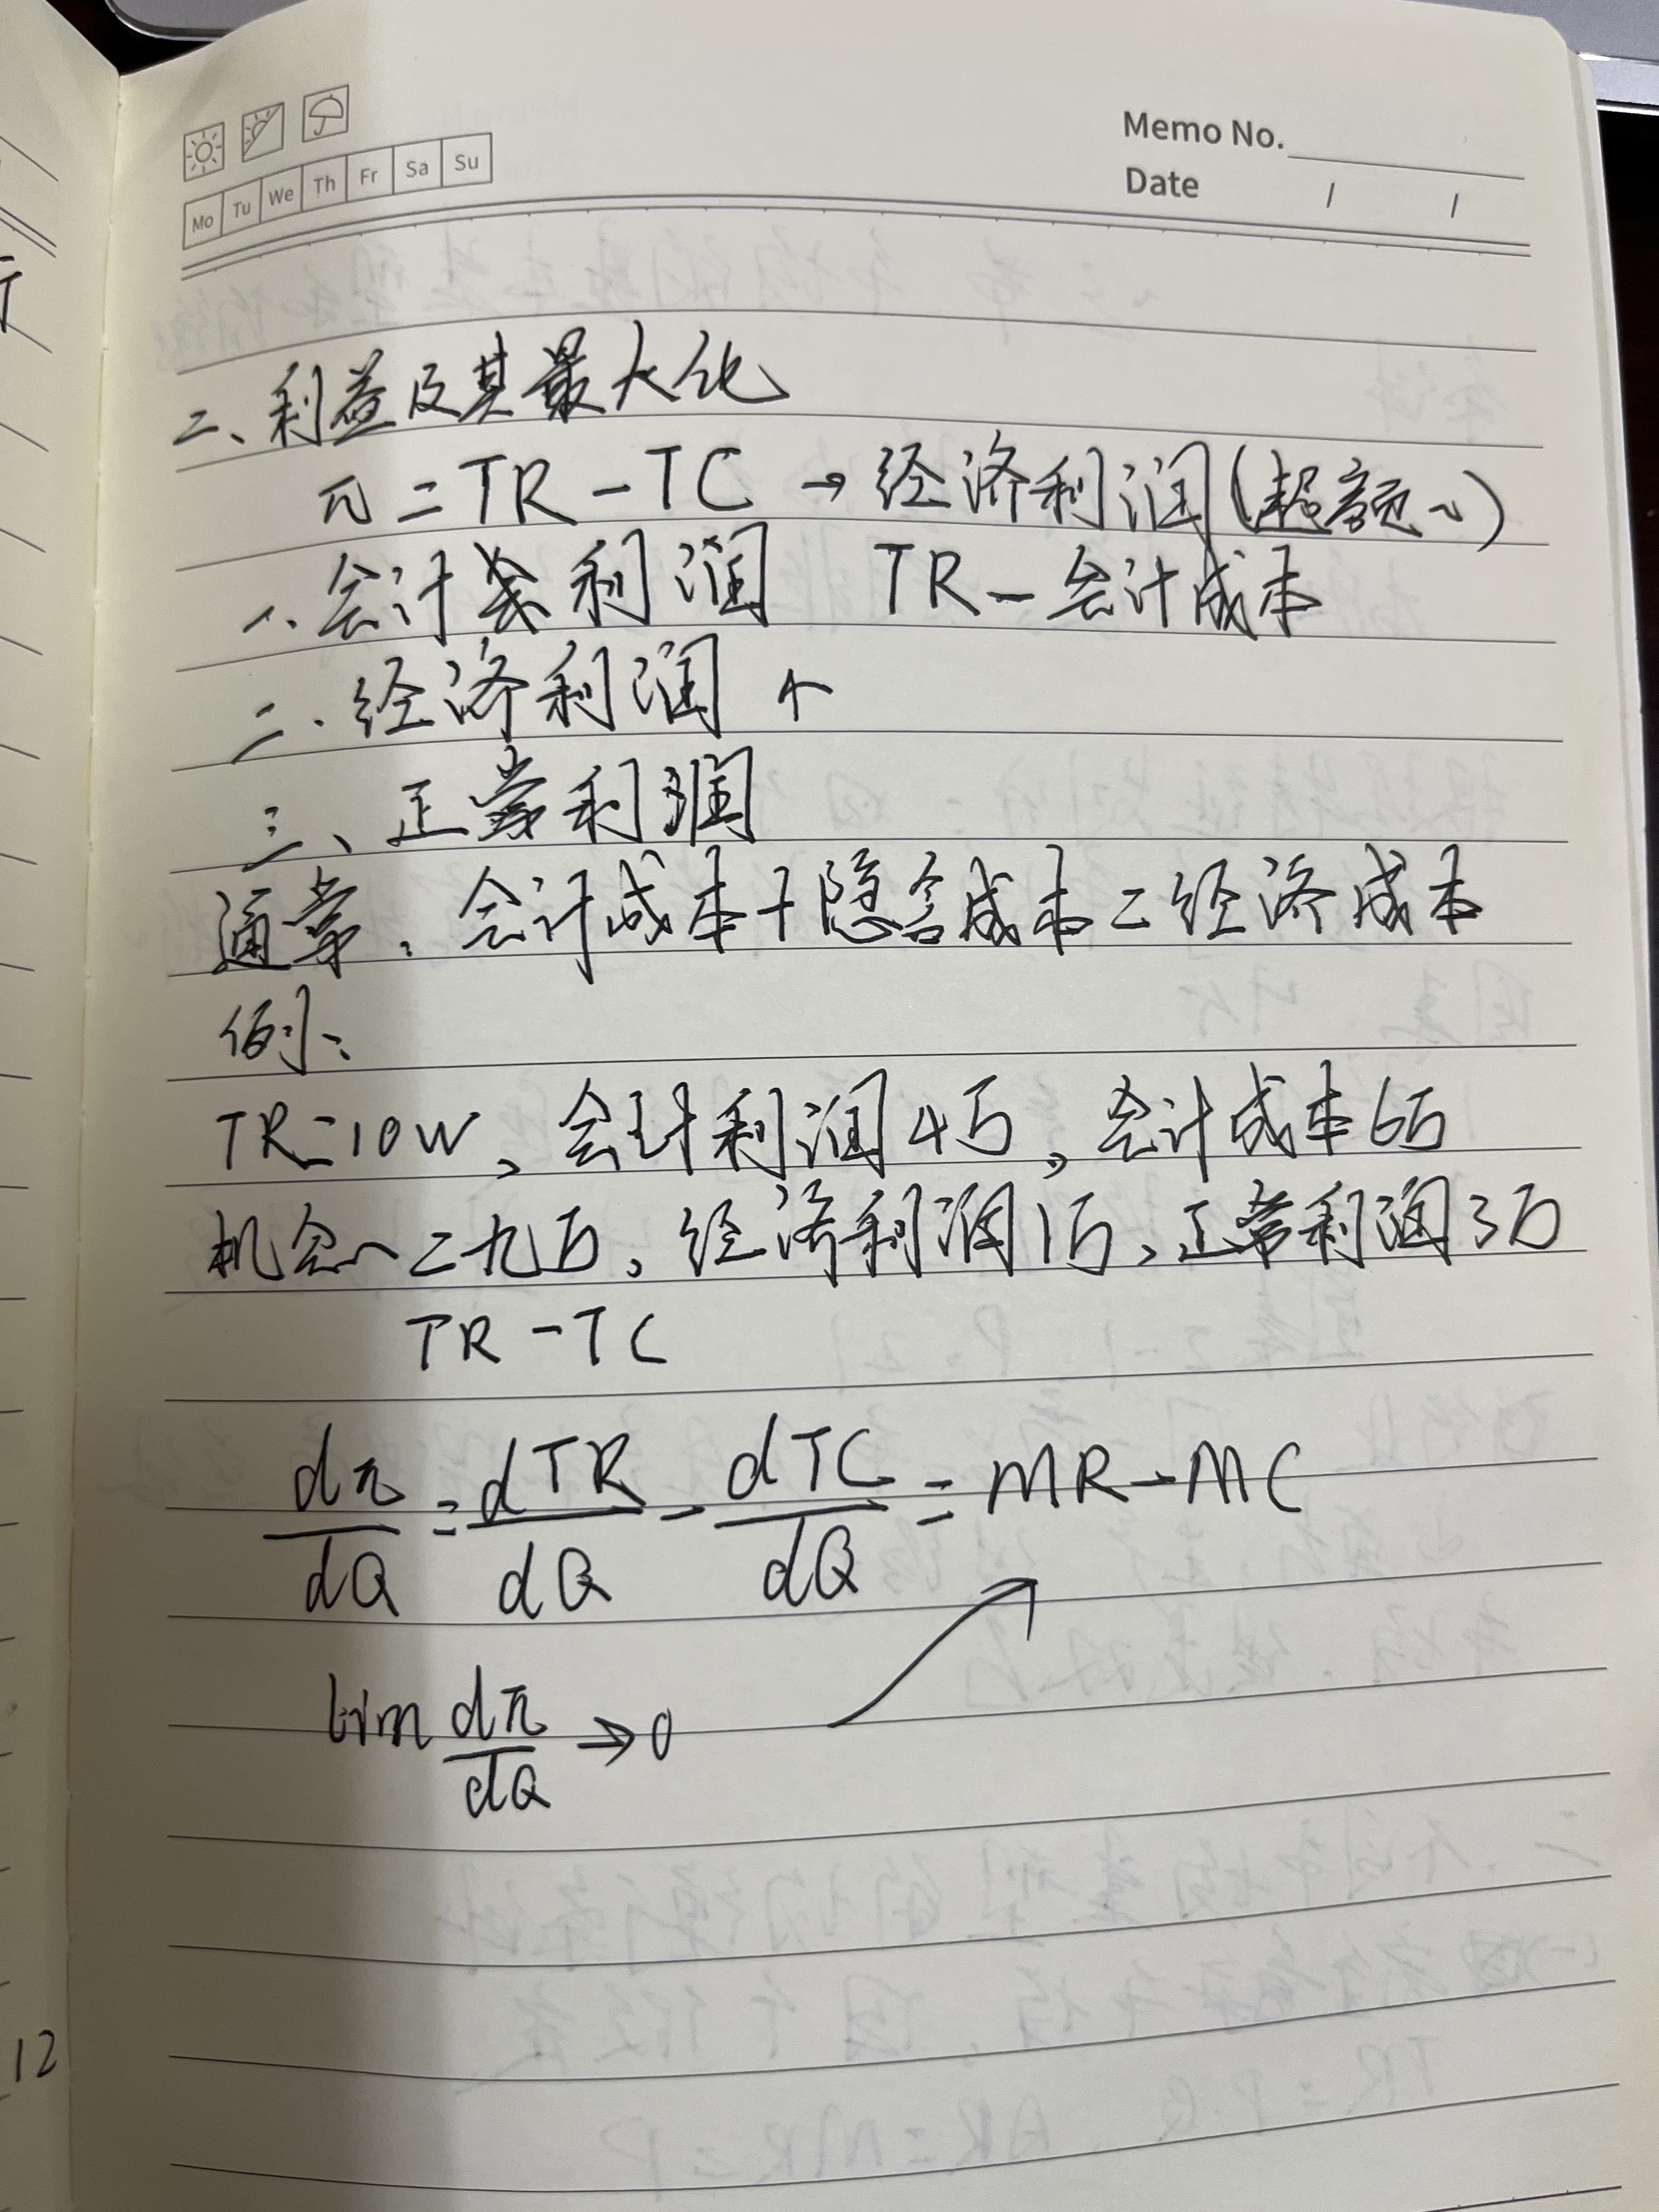 Memo No.
Mo Tu We Th Fr Sa Su
Date / /
二、利益及其最大化
π = TR - TC → 经济利润(超额~)
一、会计利润 TR - 会计成本
二、经济利润 ↑
三、正常利润
通常,会计成本+隐含成本=经济成本
例:
TR=10W、会计利润4万,会计成本6万
机会~=九万,经济利润1万、正常利润3万
TR-TC
dπ/dQ = dTR/dQ - dTC/dQ = MR-MC
lim dπ/dQ → 0
12